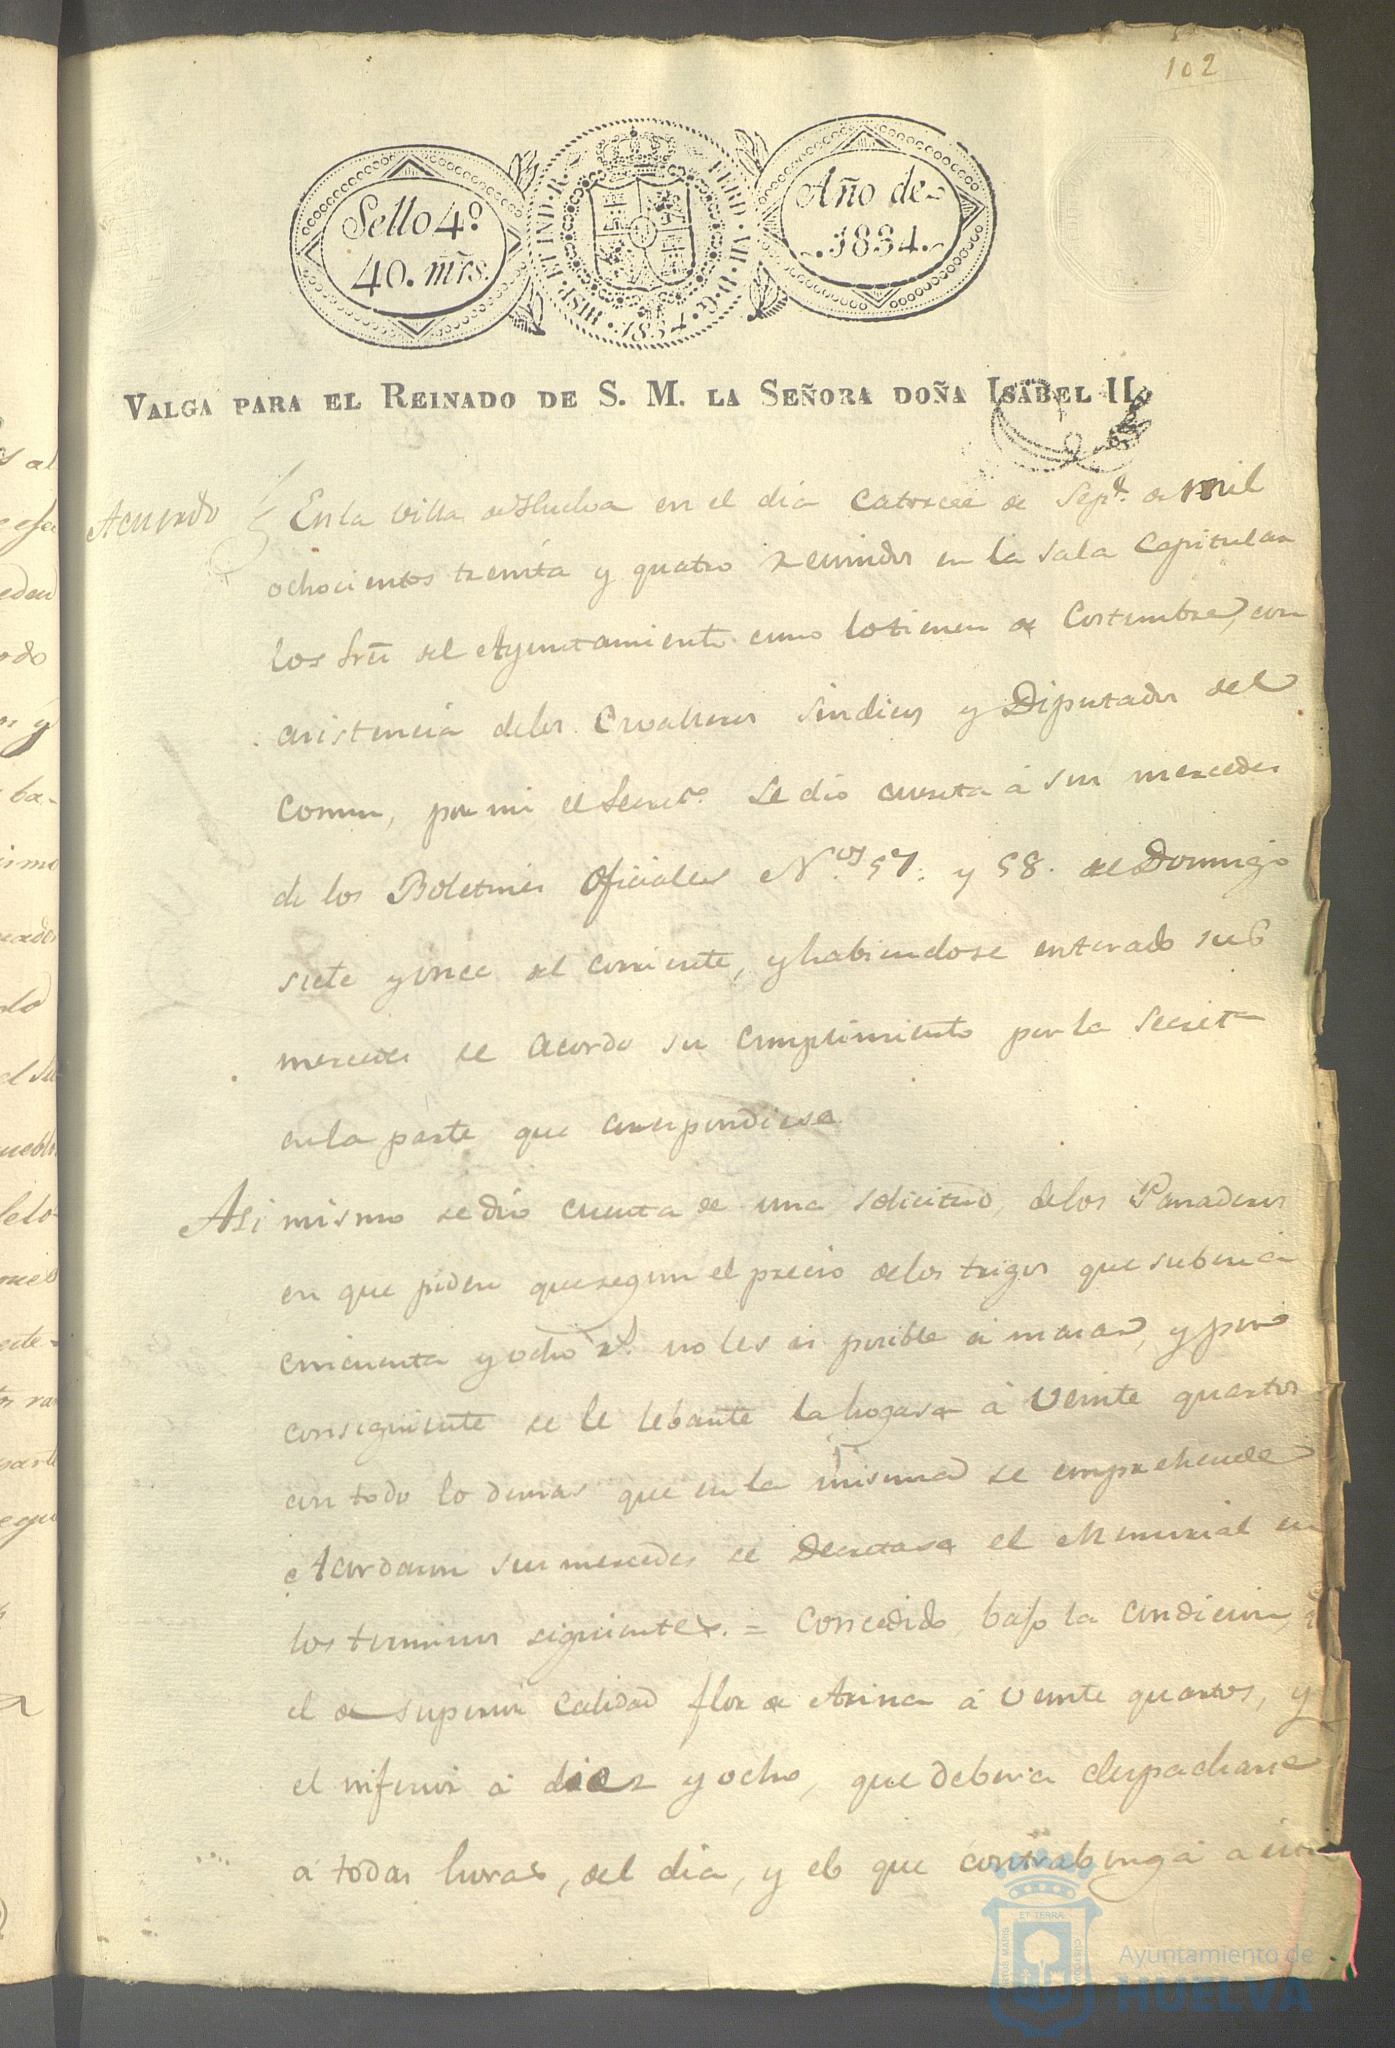 102
Sello 4.º
40. mrs.
HISP. ET IND. R. FERD. VII. D. G. 1834.
Año de
1834.
VALGA PARA EL REINADO DE S. M. LA SEÑORA DOÑA ISABEL II.
Acuerdo
En la villa de Huelva en el dia Catorce de Sepe. de mil
ochocientos treinta y quatro reunidos en la sala Capitular
los Sres del Ayuntamiento como lo tienen de Costumbre, con
asistencia de los Cavalleros Sindicos y Diputados del
Comun, por mi el Secreto. se dio cuenta á sus mercedes
de los Boletines Oficiales N.os 57. y 58. de Domingo
siete y once del corriente, y habiendose enterado sus
mercedes se acordo su cumplimiento por la Secreta
en la parte que correspondiese
Asi mismo se dio cuenta de una solicitud, de los Panaderos
en que piden que segun el precio de los trigos que suben a
cincuenta y ocho rs. no les es posible á masar, y por
consiguiente se le lebante la hogasa á Veinte quartos
con todo lo demas que en la misma se emprehende
Acordaron sus mercedes se decretase el Memorial en
los terminos siguientes. = Concedido, bajo la condicion,
el de superior calidad flor de Arina á veinte quartos, y
el inferior á diez y ocho, que debera despacharse
a todas horas, del dia, y el que contrabenga a
ET TERRÆ
Ayuntamiento de
HUELVA